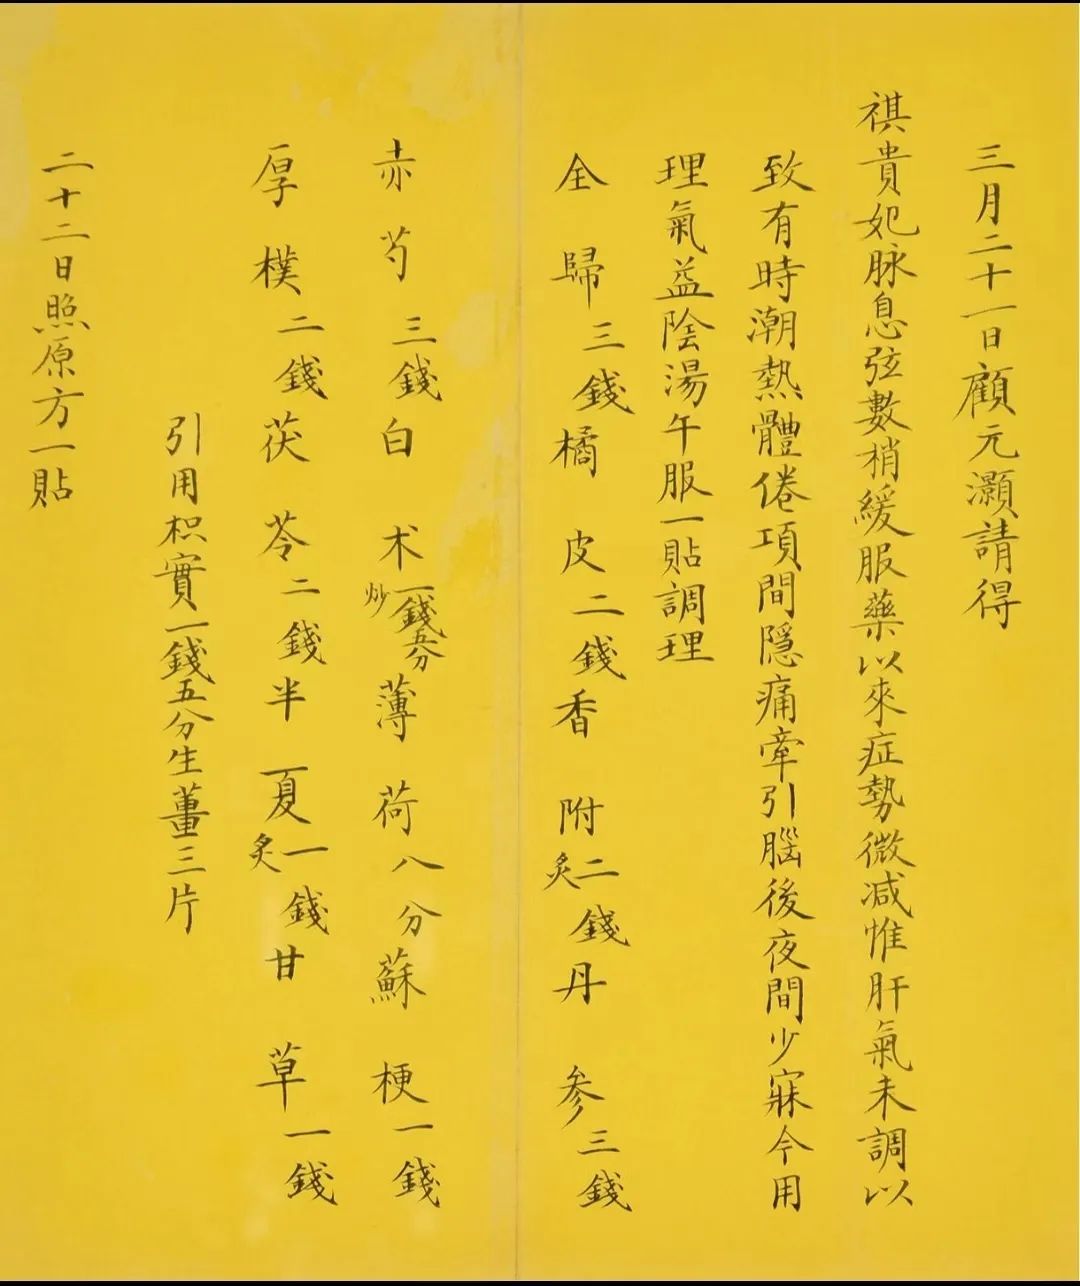 三月二十一日顧元灝請得
祺貴妃脉息弦數稍緩服藥以來症勢微减惟肝氣未調以
致有時潮熱體倦項間隱痛牽引腦後夜間少寐今用
理氣益陰湯午服一貼調理
全歸三錢橘皮二錢香附炙二錢丹参三錢
赤芍三錢白术炒一錢五分薄荷八分蘇梗一錢
厚樸二錢茯苓二錢半夏炙一錢甘草一錢
引用枳實一錢五分生薑三片
二十二日照原方一貼